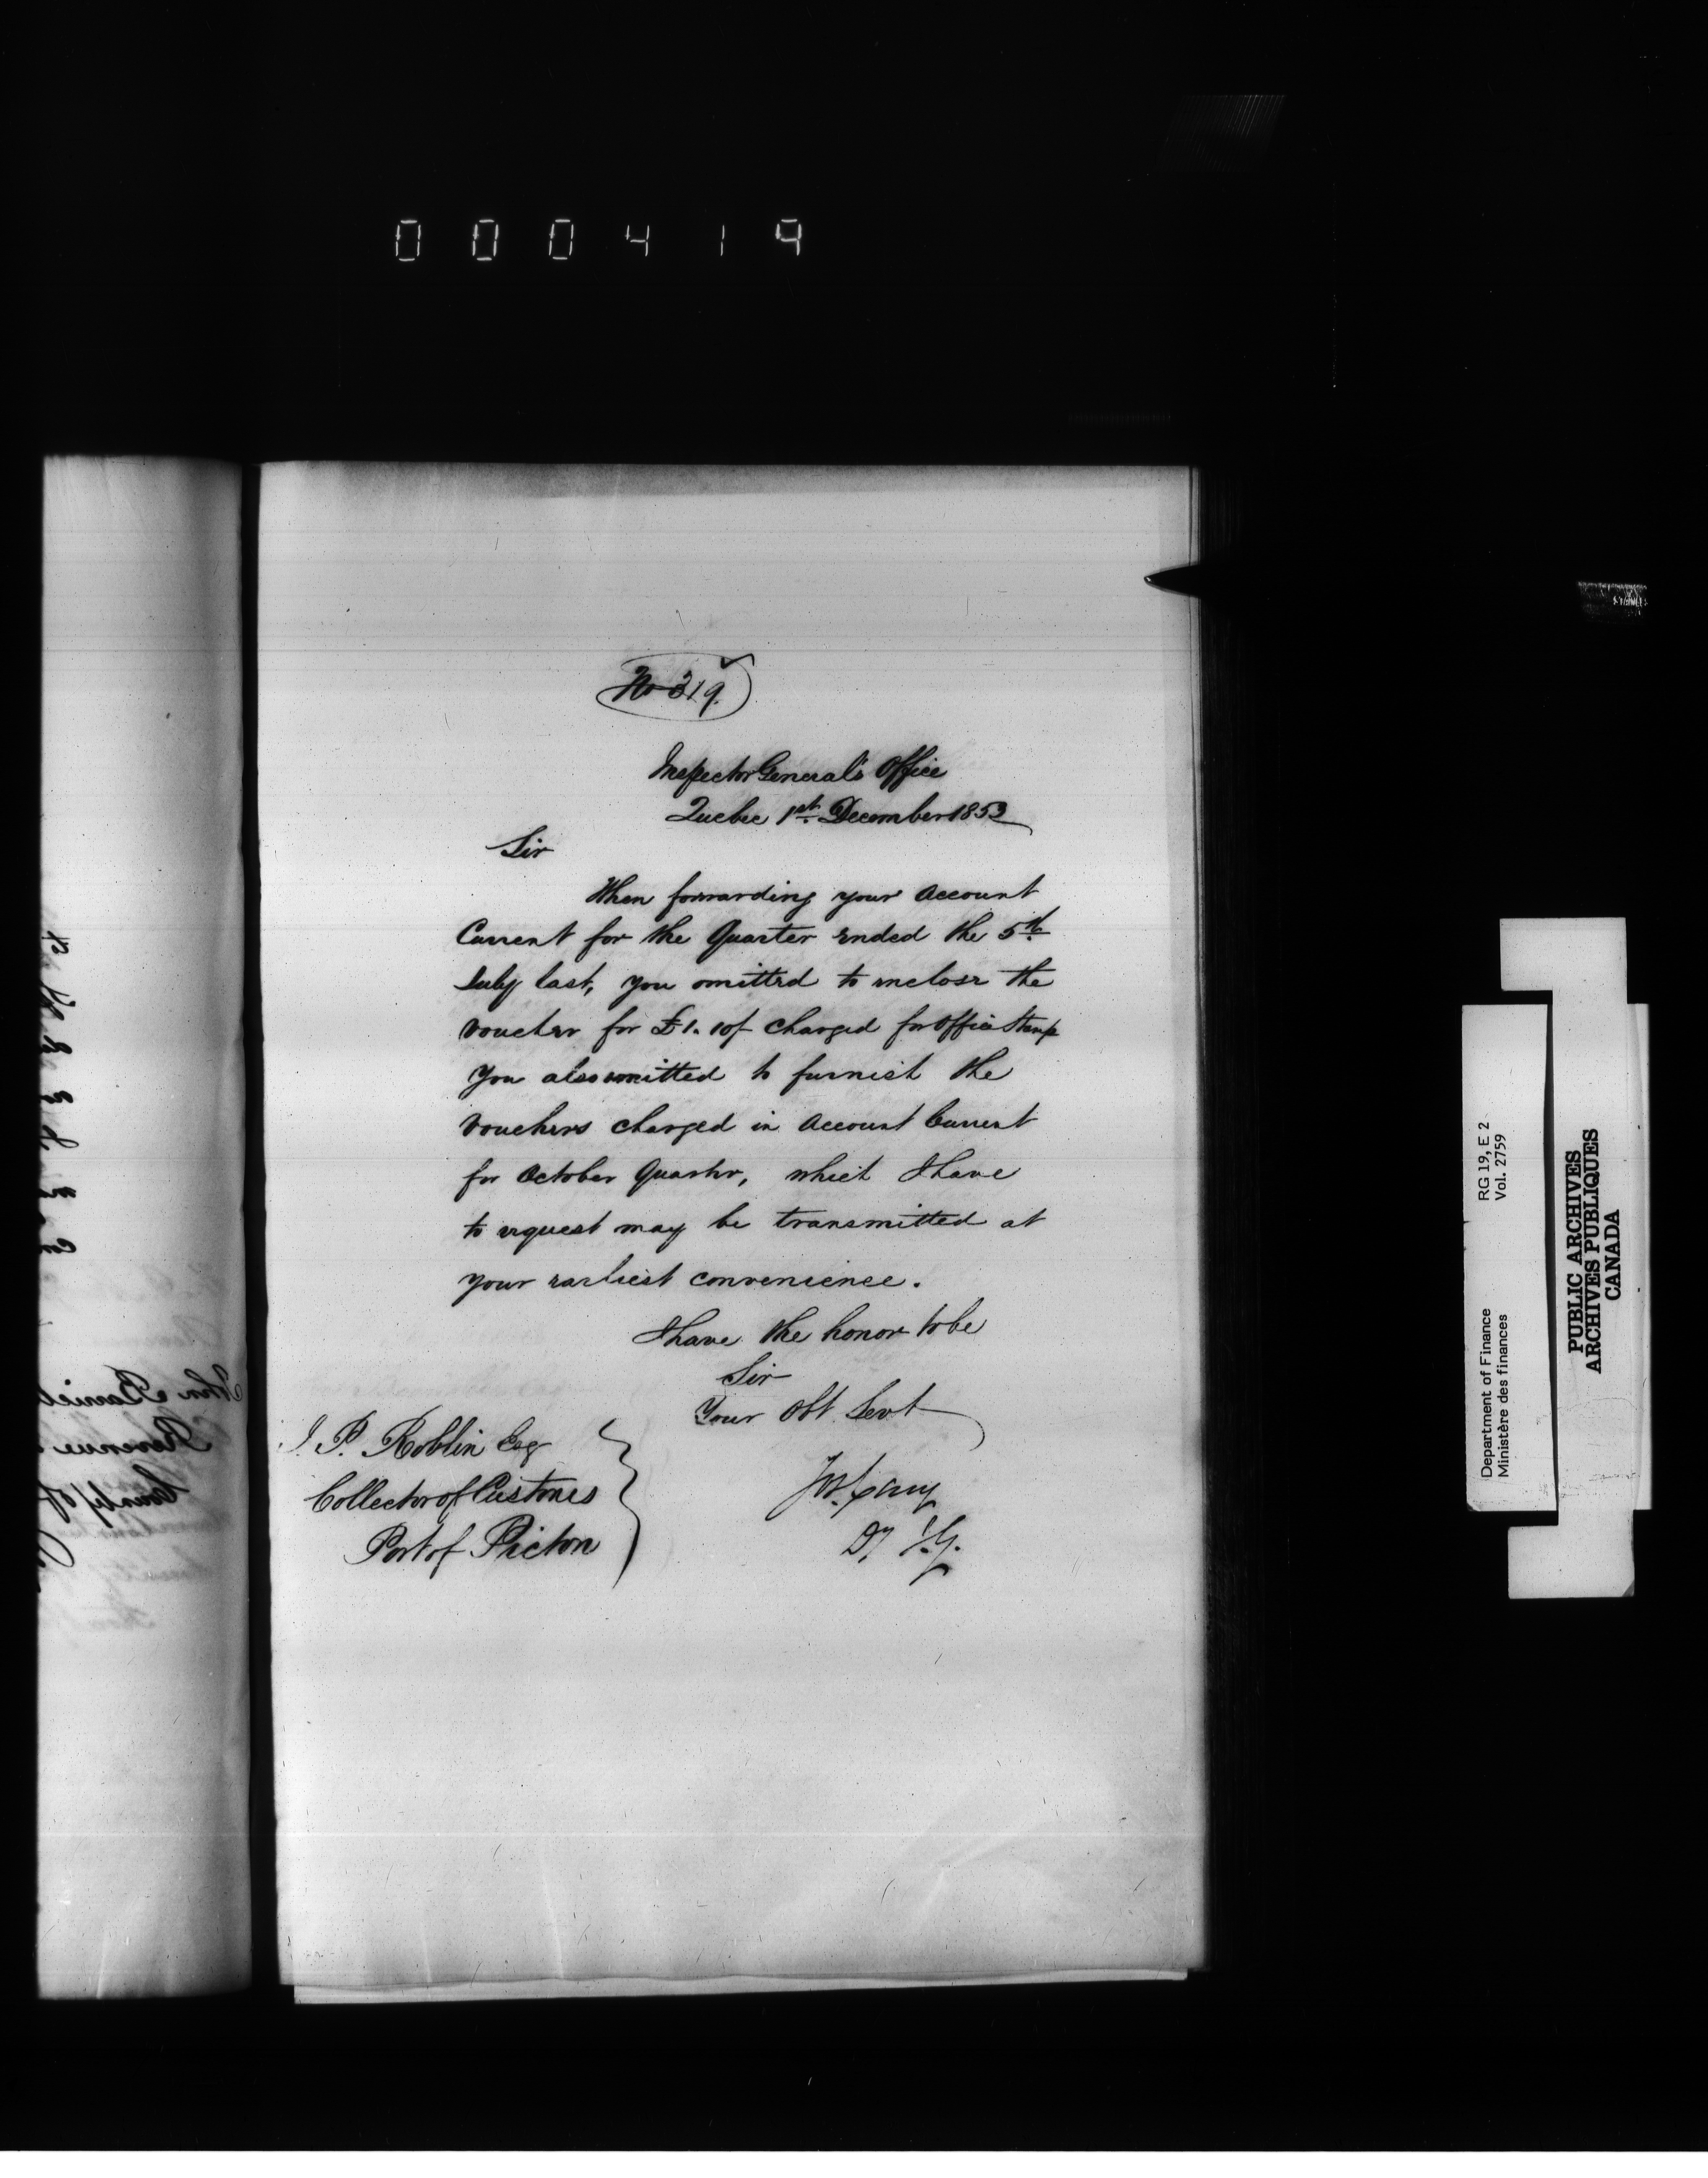 000419
No 319.
Inspector General's Office
Quebec 1st December 1853
Sir
When forwarding your Account
Current for the Quarter ended the 5th
July last, you omitted to inclose the
Voucher for £1. 10/- charged for Office Stamp
You also omitted to furnish the
Vouchers charged in Account Current
for October Quarter, which I have
to request may be transmitted at
your earliest convenience.
I have the honor to be
Sir
Your Obt Servt
J. P. Roblin Esq
Collector of Customs
Port of Picton
Jos. Cary
Dy I. G.
RG 19, E 2
Vol. 2759
Department of Finance
Ministère des finances
PUBLIC ARCHIVES
ARCHIVES PUBLIQUES
CANADA